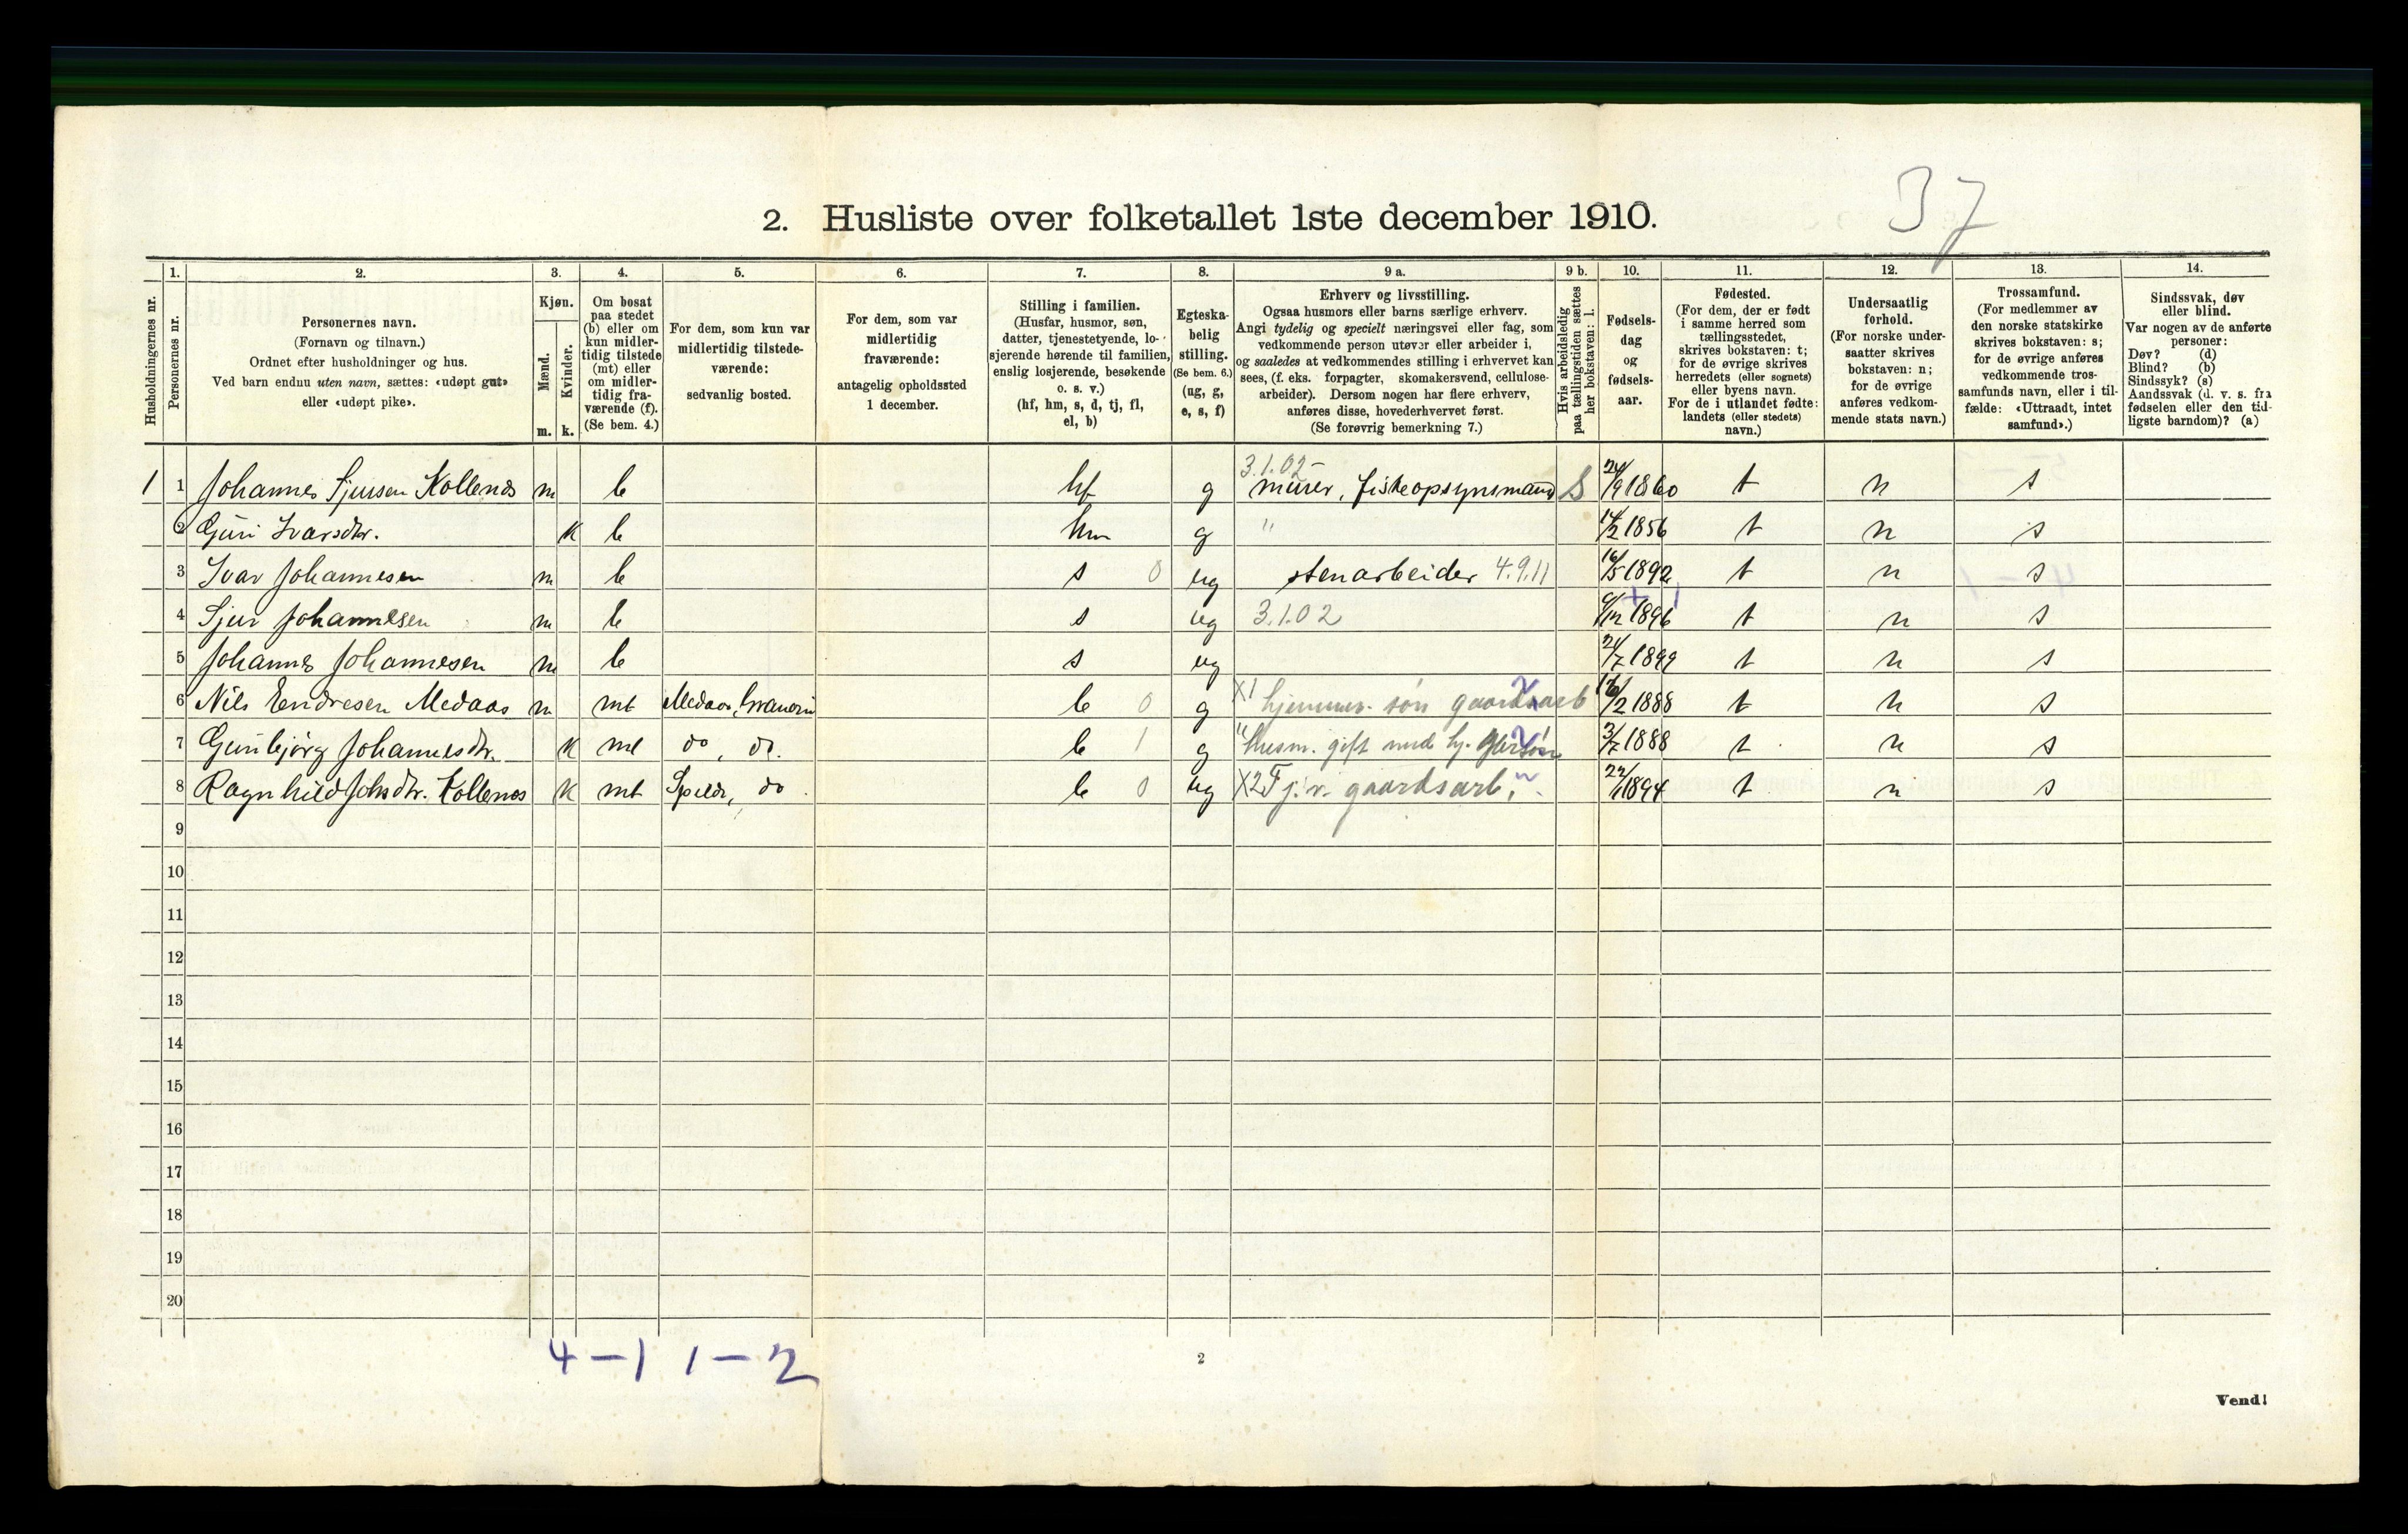 37
2. Husliste over folketallet 1ste december 1910.
Husholdningernes nr.
1.
Personernes nr.
2.
Personernes navn.
(Fornavn og tilnavn.)
Ordnet efter husholdninger og hus.
Ved barn endnu uten navn, sættes: «udøpt gut»
eller «udøpt pike».
3.
Kjøn.
Mænd.
m.
Kvinder.
k.
4.
Om bosat
paa stedet
(b) eller om
kun midler-
tidig tilstede
(mt) eller
om midler-
tidig fra-
værende (f).
(Se bem. 4.)
5.
For dem, som kun var
midlertidig tilstede-
værende:
sedvanlig bosted.
6.
For dem, som var
midlertidig
fraværende:
antagelig opholdssted
1 december.
7.
Stilling i familien.
(Husfar, husmor, søn,
datter, tjenestetyende, lo-
sjerende hørende til familien,
enslig losjerende, besøkende
o. s. v.)
(hf, hm, s, d, tj, fl,
el, b)
8.
Egteska-
belig
stilling.
(Se bem. 6.)
(ug, g,
e, s, f)
9 a.
Erhverv og livsstilling.
Ogsaa husmors eller barns særlige erhverv.
Angi tydelig og specielt næringsvei eller fag, som
vedkommende person utøver eller arbeider i,
og saaledes at vedkommendes stilling i erhvervet kan
sees, (f. eks. forpagter, skomakersvend, cellulose-
arbeider). Dersom nogen har flere erhverv,
anføres disse, hovederhvervet først.
(Se forøvrig bemerkning 7.)
9 b.
Hvis arbeidsledig
paa tællingstiden sættes
her bokstaven: l.
10.
Fødsels-
dag
og
fødsels-
aar.
11.
Fødested.
(For dem, der er født
i samme herred som
tællingsstedet,
skrives bokstaven: t;
for de øvrige skrives
herredets (eller sognets)
eller byens navn.
For de i utlandet fødte:
landets (eller stedets)
navn.)
12.
Undersaatlig
forhold.
(For norske under-
saatter skrives
bokstaven: n;
for de øvrige
anføres vedkom-
mende stats navn.)
13.
Trossamfund.
(For medlemmer av
den norske statskirke
skrives bokstaven: s;
for de øvrige anføres
vedkommende tros-
samfunds navn, eller i til-
fælde: «Uttraadt, intet
samfund».)
14.
Sindssvak, døv
eller blind.
Var nogen av de anførte
personer:
Døv? (d)
Blind? (b)
Sindssyk? (s)
Aandssvak (d. v. s. fra
fødselen eller den tid-
ligste barndom)? (a)
3.1.02
1 1 Johannes Sjursen Kollenes m b hf g murer, fiskeopsynsmand S 24/9 1860 t n s
2 Guri Ivarsdtr. k b hm g " 14/2 1856 t n s
3 Ivar Johannesen m b s 0 ug stenarbeider 4.9.11 16/5 1892 t n s
4 Sjur Johannesen m b s ug 3.1.02 1896 t n s
5 Johannes Johannesen m b s ug 24/7 1899 t n s
6 Nils Endresen Medaas m mt Medaas, b 0 g X1 hjemmev. søn gaardsarb 1888 t n s
7 Gunbjørg Johannesdtr. k mt do, do. b 1 g " Husm. gift med hj. 3/7 1888 t n s
8 Ragnhild Johsdtr. Kollenes k mt do b 0 ug X2 gaardsarb. 1894 t n s
9
10
11
12
13
14
15
16
17
18
19
20
4 – 1 1 – 2
2
Vend!